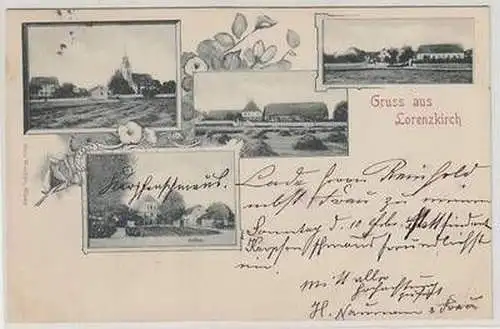 Gruss aus
Lorenzkirch
Karpfenschmaus.
Lade Herrn Reinhold
nebst Frau zu meinem
Sonntag d. 10 Febr. stattfindend
Karpfenschmaus freundlichst
ein.
Mit aller
Hochachtung
H. Naumann u Frau